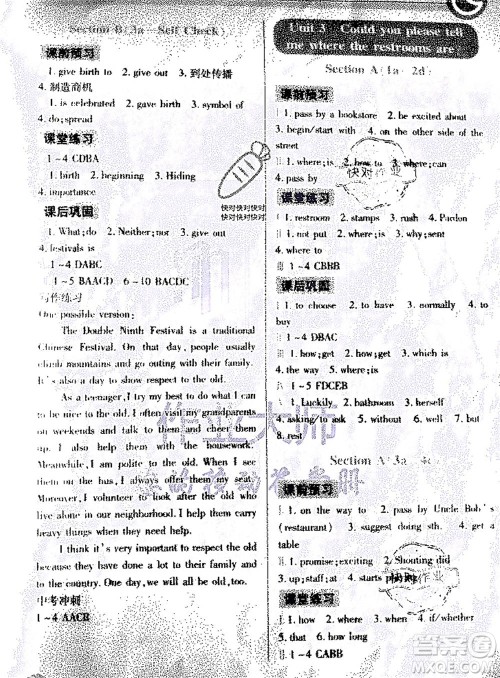 Section B(3a—Self Check)
课前预习
1. give birth to 2. give out 3. 到处传播
4. 制造商机
1. is celebrated 2. gave birth 3. symbol of
4. do;spread
课堂练习
1~4 CDBA
1. birth 2. beginning 3. Hiding
4. importance
课后巩固
1. What;do 2. Neither;nor 3. give out
4. festivals is
1~4 DABC
1~5 BAACD 6~10 BACDC
写作练习
One possible version:
The Double Ninth Festival is a traditional
Chinese Festival. On that day, people usually
climb mountains and go outing with their family.
It's a day to show our respect to the old.
As a teenager, I try my best to do what I can
to be nice to the old. I visit my grandparents
on weekends and talk to them and cheer them
up. I usually help them with the housework.
Meanwhile, I am polite to the old. When I'm
on the bus, I offer my seat to those in need.
Moreover, I volunteer to read to the old who
live alone in our neighborhood. I help them carry
heavy things when they need.
I think it's very important to respect the old
because they have devoted much to their family
and to the country. One day, we will all be old, too.
中考冲刺
1~4 AACB
Unit 3 Could you please tell
me where the restrooms are
Section A(1a—2d)
课前预习
1. pass by a bookstore 2. be excited about
3. begin/start with 4. on the other side of the
street
1. where;is 2. how to 3. where;can
4. pass by
课堂练习
1. restroom 2. stamps 3. rush 4. Pardon
1. not put 2. where is 3. begin with 4. sent
where to
1~4 CBBB
课后巩固
1. pardon 2. to have 3. normally 4. to
buy
1~4 DBAC
1~5 FDCEB
1. Luckily 2. bathroom 3. herself
4. asking 5. to have 6. where 7. but
8. rest
Section A(3a—4c)
课前预习
1. pardon me 2. pass by Uncle Bob's
(restaurant) 3. suggest doing sth. 4. get a
table
1. promise;coming 2. Shouting did
3. up;staff;at 4. starts playing
课堂练习
1. how 2. where 3. when 4. if/whether
1. that 2. how to go 3. where to park
1~4 CABB
快对作业
快对快对快对
快对快对快对
作业大师
答案圈
MXQE.COM